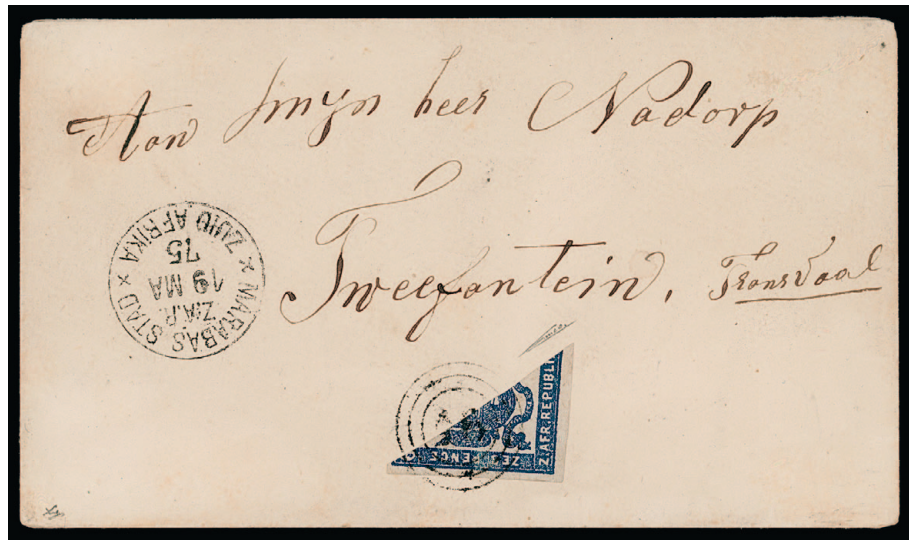 Aan Smyn heer Nadorp
Tweefontein, Transvaal
MARABAS STAD × ZUID AFRIKA ×
Z.A.R.
19 MA
75
Z. AFR. REPUBLI
ZES PENCE